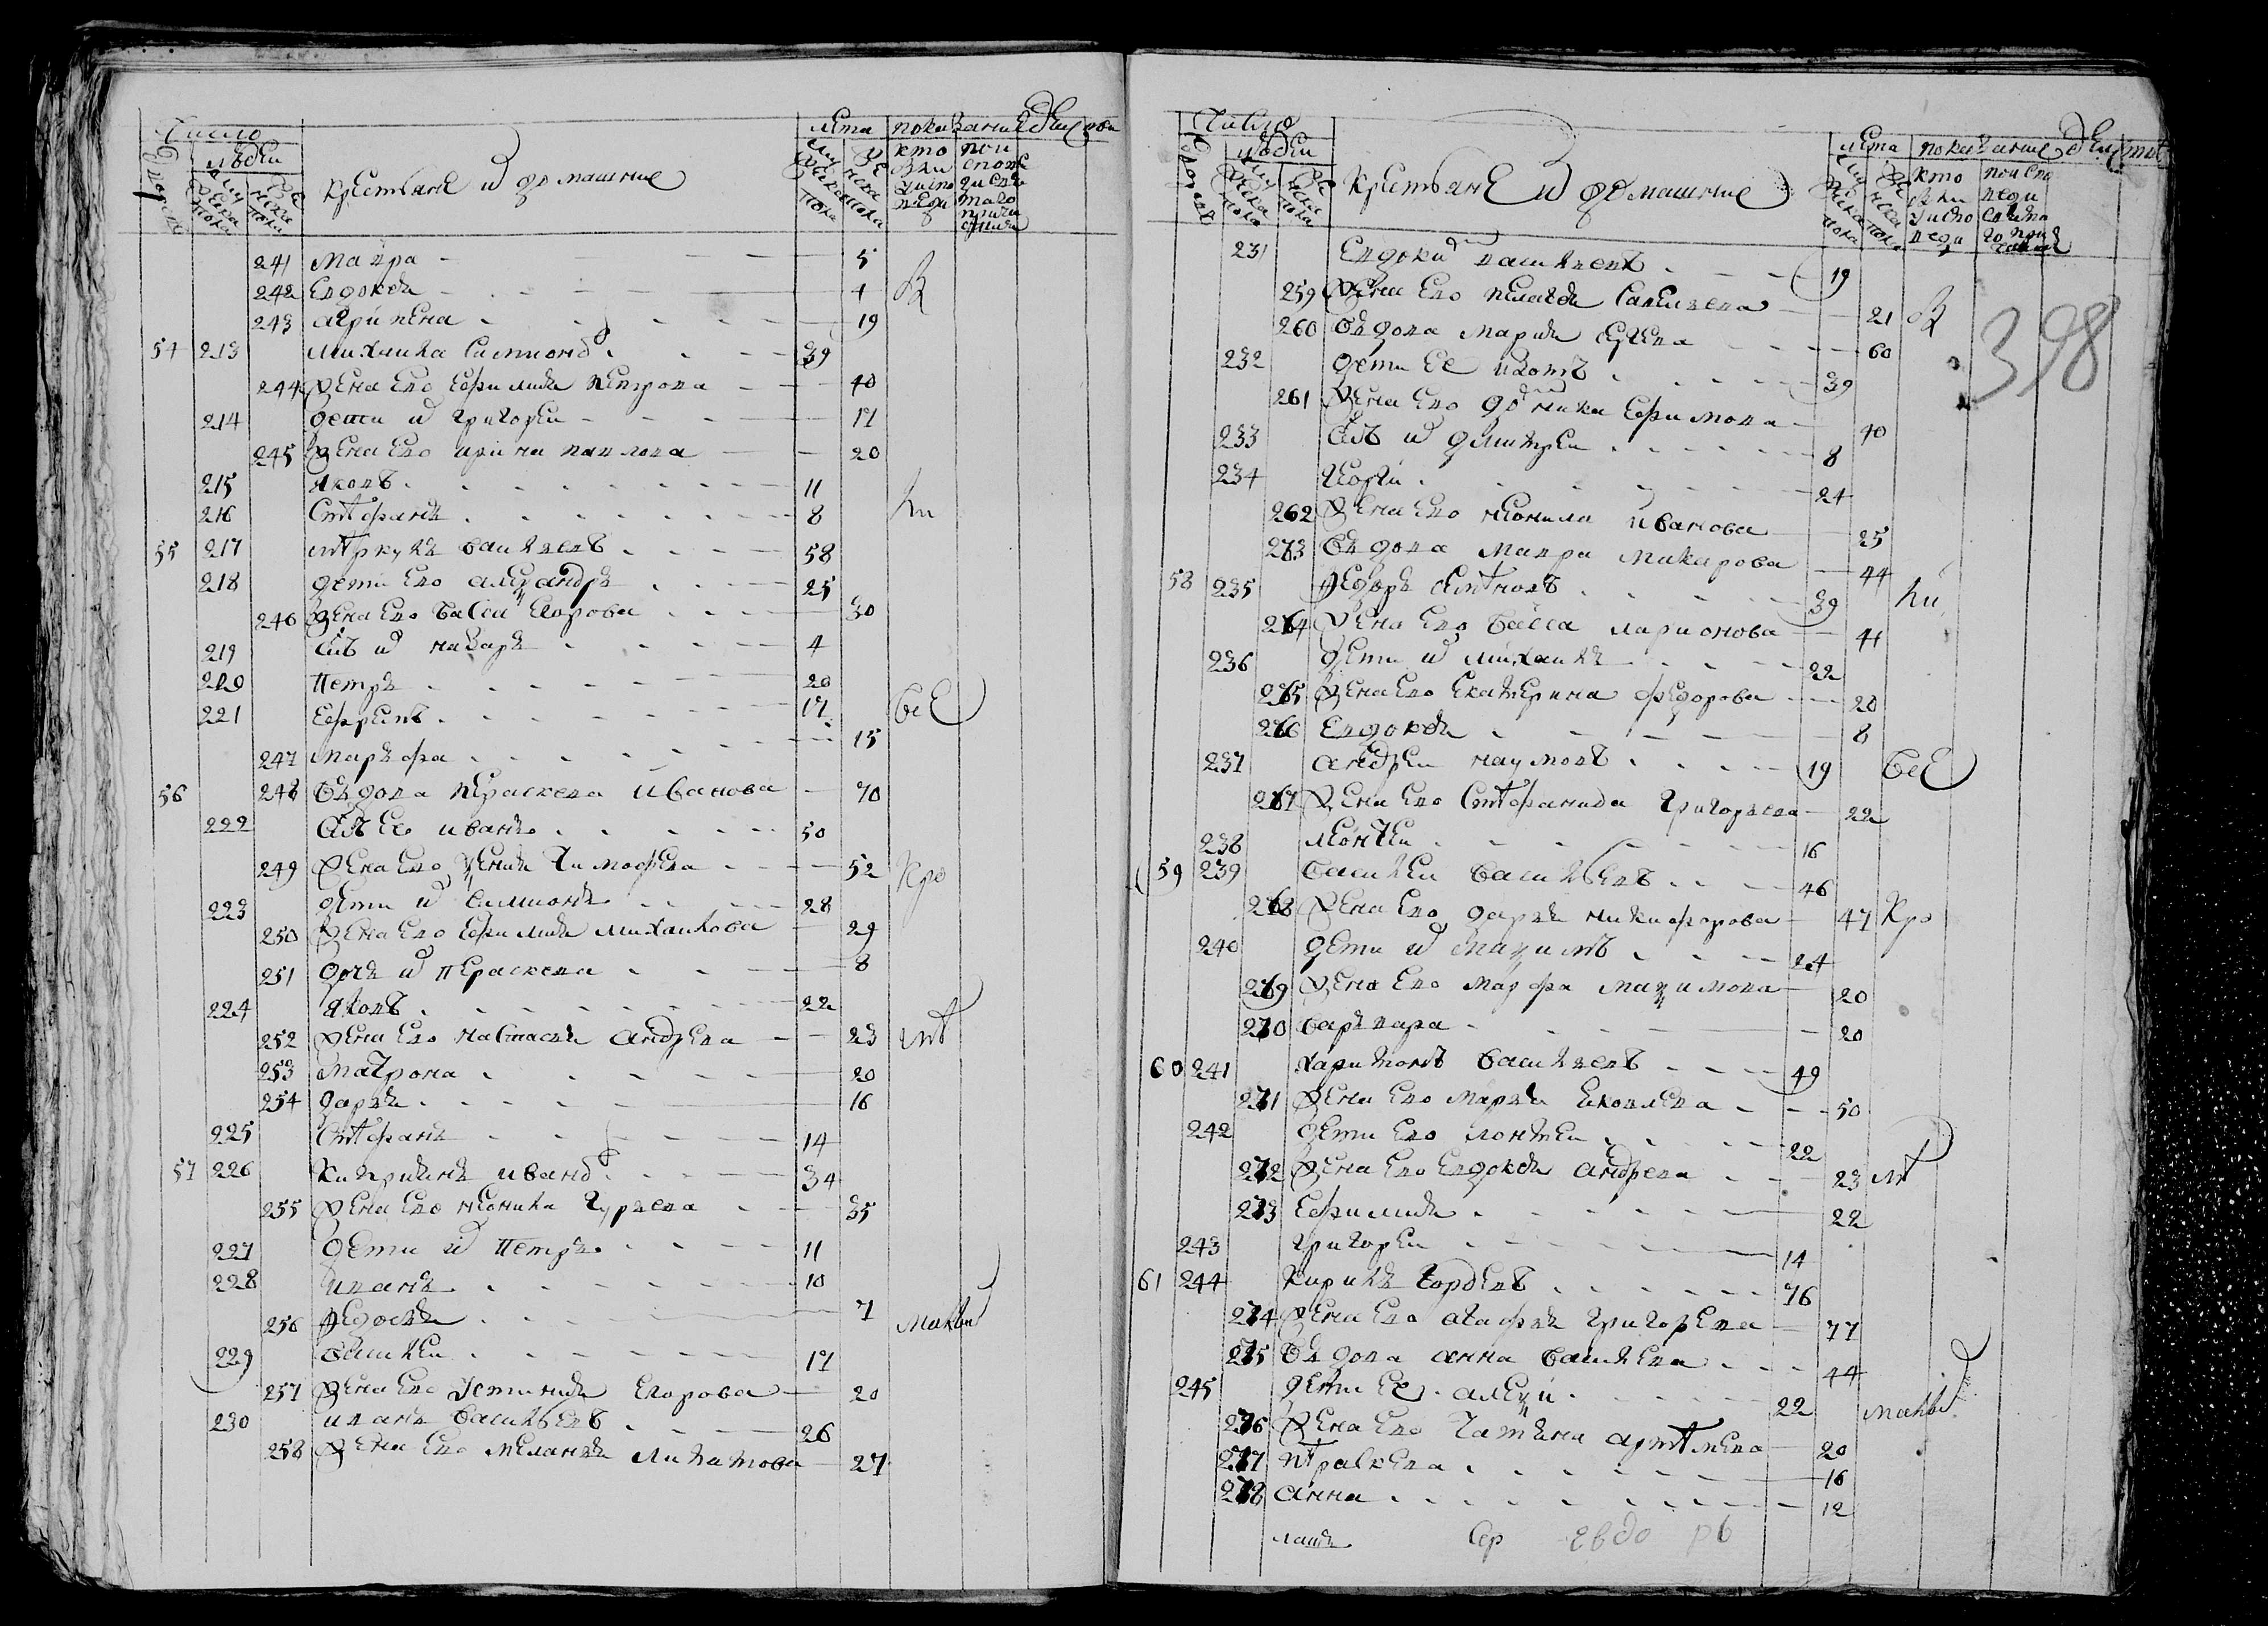 Число
людей
Крестьяне и домашние
лета показание действа
241 Мавра 5
242 Евдокея 1
243 Агрипена 19
54 213 Михаила Симионов 39
244 Жена ево Ефимия Петрова 40
214 дети их Григорей 17
245 Жена ево Ирина Павлова 20
215 Яковъ 11
216 Стефанъ 8
55 217 Меркулъ Васильевъ 58
218 дети ево Александръ 25
246 Жена ево Васса Егорова 30
219 Сынъ их Назаръ 4
220 Петръ 20
221 Ефремъ 17
247 Марфа 15
56 248 Вдова Параскева Иванова 70
222 Сынъ Ее Иванъ 50
249 Жена ево Ксения Тимофеева 52
223 дети их Симионъ 28
250 Жена ево Ефимия Михаилова 29
251 дочь их Параскева 8
224 Яковъ 22
252 Жена ево Настасья Андреева 23
253 Матрона 20
254 Дарья 16
225 Стефанъ 14
57 226 Киприянъ Иванов 34
255 Жена ево Неонила Гурьева 35
227 дети их Петръ 11
228 Иванъ 10
256 Федосья 7
229 Василей 17
257 Жена ево Устиния Егорова 20
230 Иванъ Васильевъ 26
258 Жена ево Меланья Липатова 27
Число
людей
Крестьяне и домашние
лета показание действа
231 Евдоким Васильевъ 19
259 Жена ево Пелагея Савельева 21
260 Вдова Мария 60
398
232 дети Ее Изотъ 39
261 Жена ево Домника Ефимова 40
233 Сынъ их Дмитрей 8
234 Георги 24
262 Жена ево Неонила Иванова 25
263 Вдова Мавра Макарова 44
58 235 Федоръ Семеновъ 39
264 Жена ево Васса Ларионова 41
236 дети их Михаилъ 22
265 Жена ево Екатерина Федорова 20
266 Евдокея 8
237 Андрей Наумовъ 19
267 Жена ево Стефанида Григорьева 22
238 Леонтей 16
59 239 Василей Васильевъ 46
268 Жена ево Дарья Никифорова 47
240 дети их Максимъ 24
269 Жена ево Марфа Максимова 20
270 Варвара 20
60 241 Харитонъ Васильевъ 49
271 Жена ево Марья Яковлева 50
242 дети ево Леонтей 22
272 Жена ево Евдокея Андреева 23
273 Ефимия 22
243 Григорей 14
61 244 Кирилъ Гордеевъ 76
274 Жена ево Агафья Григорева 77
275 Вдова Анна Васильева 44
245 дети Ее Алексей 22
276 Жена ево Татьяна Артемева 20
277 Праскева 16
278 Анна 12